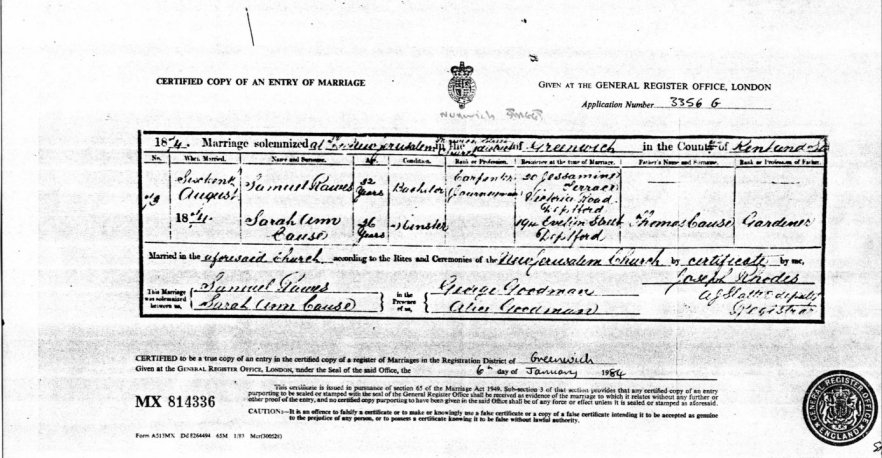 CERTIFIED COPY OF AN ENTRY OF MARRIAGE
GIVEN AT THE GENERAL REGISTER OFFICE, LONDON
Application Number 3356 G
18 74. Marriage solemnized at New Jerusalem Church in the of Greenwich in the County of Kent
No. When Married. Name and Surname. Age. Condition. Rank or Profession. Residence at the time of Marriage. Father's Name and Surname. Rank or Profession of Father.
Sixteenth August 1874. Samuel Years Bachelor Carpenter Journeyman 20 Jessamine Terrace Victoria Road Deptford
Sarah Ann Cause 36 Years Spinster Evelin Street Deptford Thomas Cause Gardener
Married in the aforesaid Church according to the Rites and Ceremonies of the New Jerusalem Church by certificate by me,
This Marriage was solemnized between us, Samuel Sarah Ann Cause in the Presence of us, George Goodman Goodman
Joseph Rhodes
deputy Registrar
CERTIFIED to be a true copy of an entry in the certified copy of a register of Marriages in the Registration District of Greenwich
Given at the GENERAL REGISTER OFFICE, LONDON, under the Seal of the said Office, the 6th day of January 1984
MX 814336
This certificate is issued in pursuance of section 65 of the Marriage Act 1949. Sub-section 3 of that section provides that any certified copy of an entry
purporting to be sealed or stamped with the seal of the General Register Office shall be received as evidence of the marriage to which it relates without any further or
other proof of the entry, and no certified copy purporting to have been given in the said Office shall be of any force or effect unless it is sealed or stamped as aforesaid.
CAUTION:—It is an offence to falsify a certificate or to make or knowingly use a false certificate or a copy of a false certificate intending it to be accepted as genuine
to the prejudice of any person, or to possess a certificate knowing it to be false without lawful authority.
Form A513MX Dd 8264494 65M 1/83 Mcr(300528)
GENERAL REGISTER OFFICE
ENGLAND